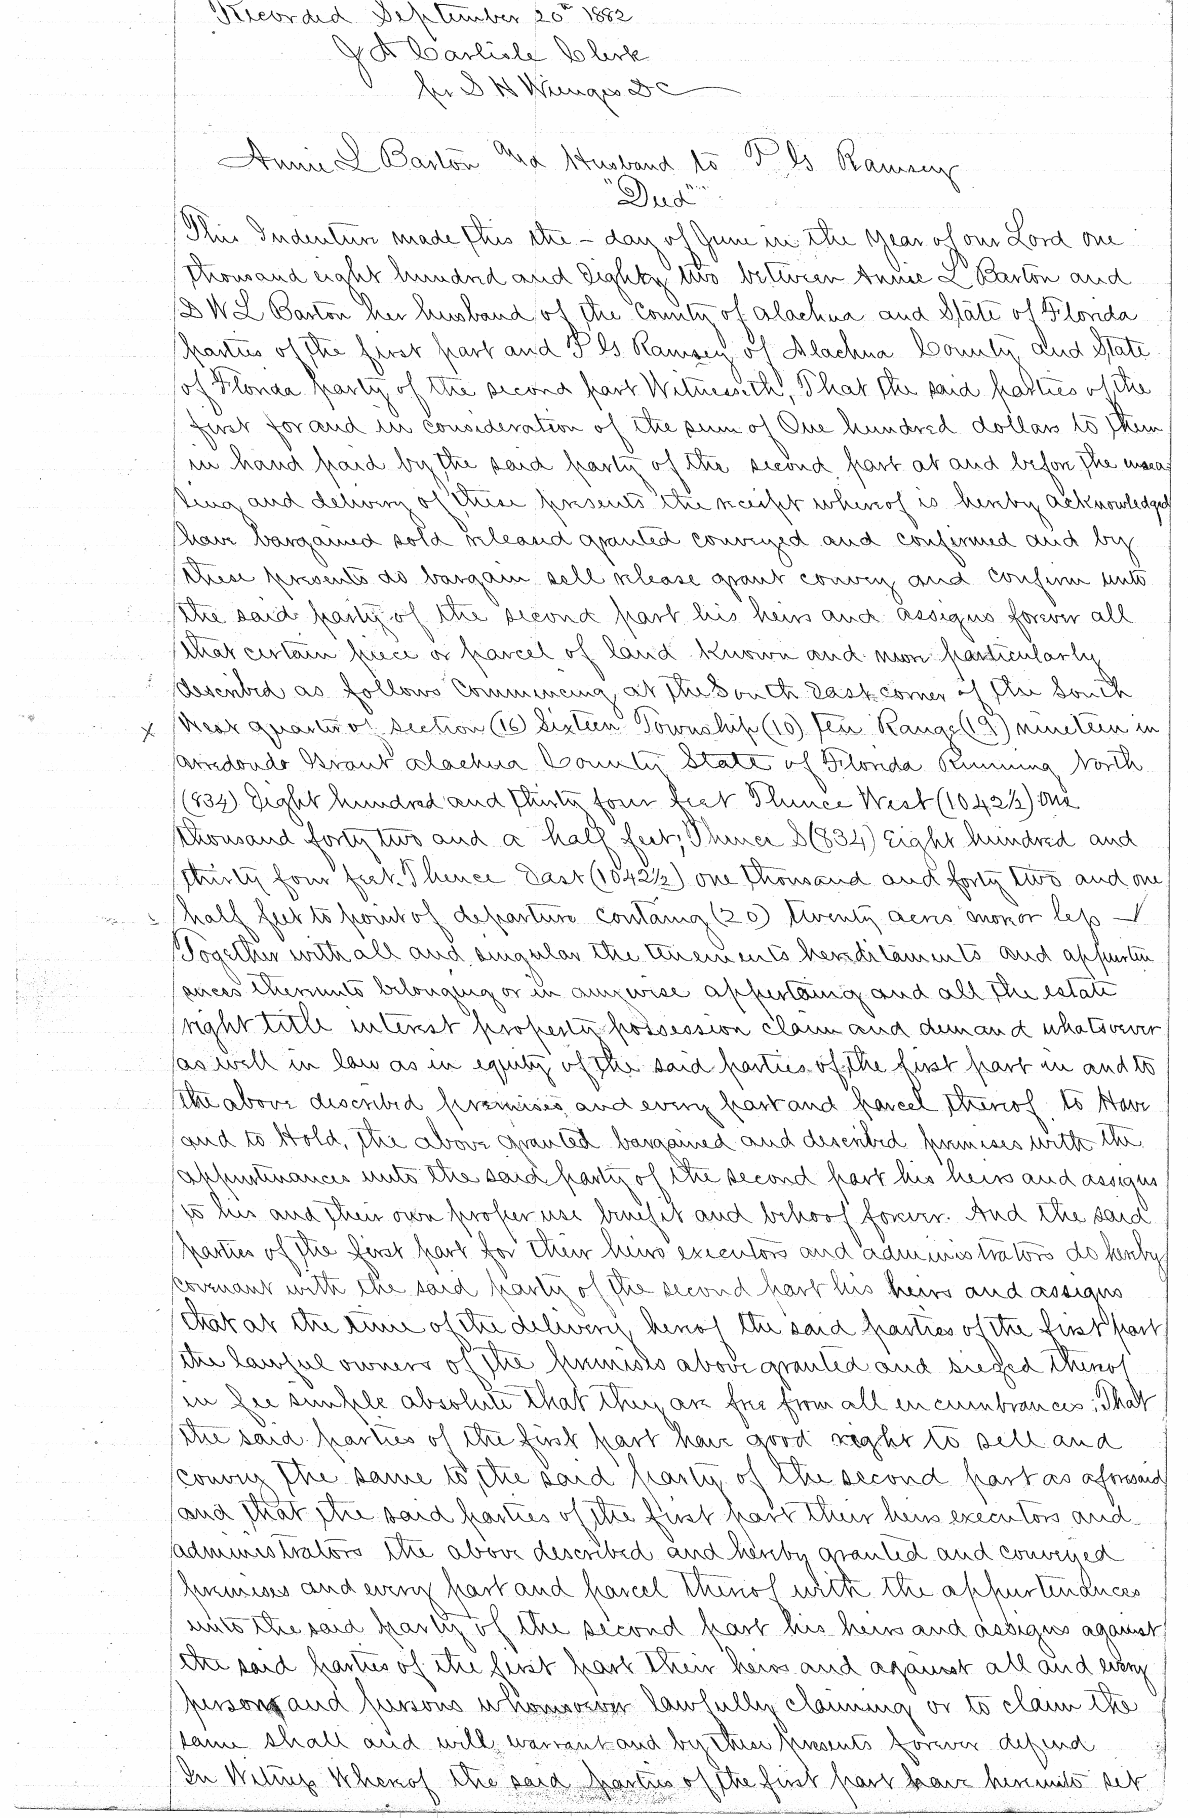 Recorded September 20th 1882
J A Carlisle Clerk
for S H Wienges DC
Annie L Barton and Husband to P G Ramsey
"Deed"
This Indenture made this the - day of June in the Year of our Lord one
thousand eight hundred and Eighty two between Annie L Barton and
D W L Barton her husband of the County of Alachua and State of Florida
parties of the first part and P G Ramsey of Alachua County and State
of Florida party of the second part Witnesseth, That the said parties of the
first for and in consideration of the sum of One hundred dollars to them
in hand paid by the said party of the second part at and before the ensea
ling and delivery of these presents the receipt whereof is hereby acknowledged
have bargained sold released granted conveyed and confirmed and by
these presents do bargain sell release grant convey and confirm unto
the said party of the second part his heirs and assigns forever all
that certain piece or parcel of land known and more particularly
described as follows Commencing at the South East corner of the South
x West quarter of section (16) Sixteen Township (10) Ten Range (19) nineteen in
Arredondo Grant Alachua County State of Florida Running North
(834) Eight hundred and Thirty four feet Thence West (1042½) One
thousand forty two and a half feet; Thence S (834) Eight hundred and
thirty four feet. Thence East (1042½) one thousand and forty two and one
half feet to point of departure containg (20) twenty acres more or less
Together with all and singular the tenements hereditaments and appurten
ances thereunto belonging or in anywise appertaing and all the estate
right title interest property possession claim and demand whatsoever
as well in law as in equity of the said parties of the first part in and to
the above described premises and every part and parcel thereof to Have
and to Hold, the above granted bargained and described premises with the
appurtenances unto the said party of the second part his heirs and assigns
to his and their own proper use benefit and behoof forever. And the said
parties of the first part for their heirs executors and administrators do hereby
covenant with the said party of the second part his heirs and assigns
that at the time of the delivery hereof the said parties of the first part
the lawful owners of the premises above granted and siezed thereof
in fee simple absolute that they are free from all encumbrances; That
the said parties of the first part have good right to sell and
convey the same to the said party of the second part as aforesaid
and that the said parties of the first part their heirs executors and
administrators the above described and hereby granted and conveyed
premises and every part and parcel thereof with the appurtenances
unto the said party of the second part his heirs and assigns against
the said parties of the first part their heirs and against all and every
person and persons whomsoever lawfully claiming or to claim the
same shall and will warrant and by these presents forever defend
In Witness Whereof the said parties of the first part have hereunto set